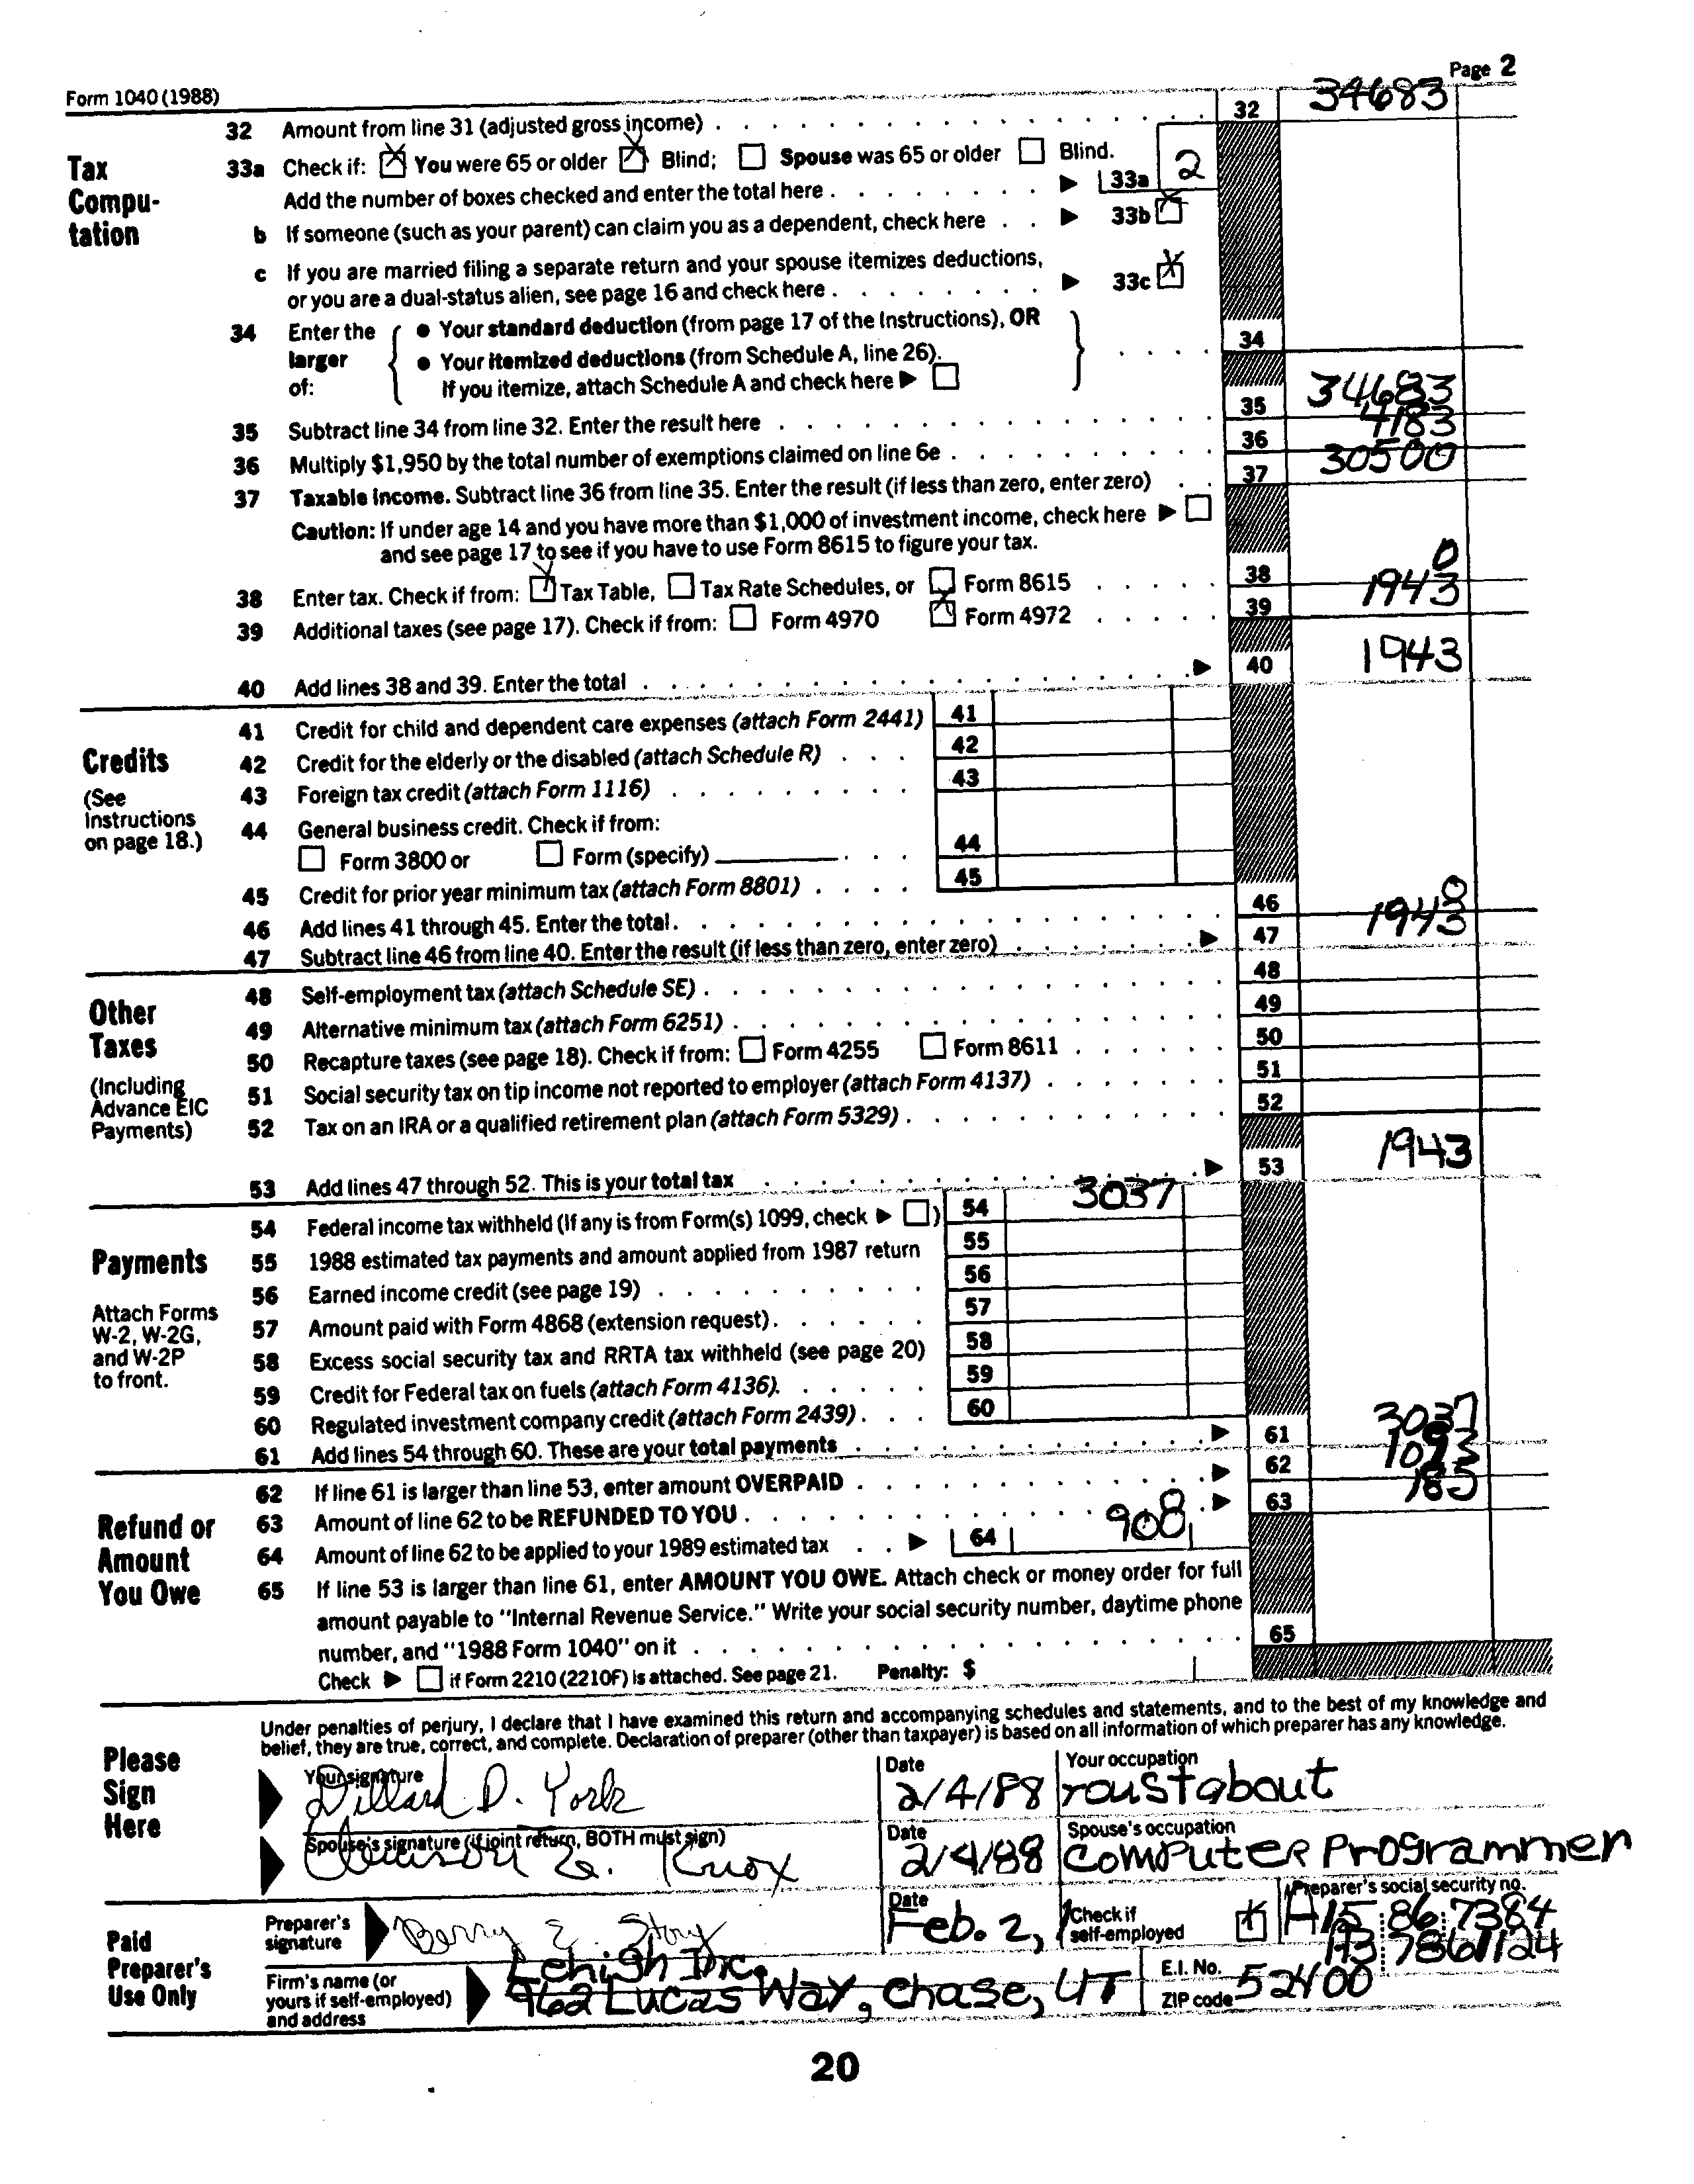 Form 1040 (1988) Page 2
Tax Computation
32 Amount from line 31 (adjusted gross income) 32 34683
33a Check if: ☒ You were 65 or older ☒ Blind; ☐ Spouse was 65 or older ☐ Blind.
Add the number of boxes checked and enter the total here ▶ 33a 2
b If someone (such as your parent) can claim you as a dependent, check here ▶ 33b ☒
c If you are married filing a separate return and your spouse itemizes deductions,
or you are a dual-status alien, see page 16 and check here ▶ 33c ☒
34 Enter the larger of: { ● Your standard deduction (from page 17 of the Instructions), OR
● Your itemized deductions (from Schedule A, line 26).
If you itemize, attach Schedule A and check here ▶ ☐ } 34
35 Subtract line 34 from line 32. Enter the result here 35 34683
36 Multiply $1,950 by the total number of exemptions claimed on line 6e 36 4183
37 Taxable income. Subtract line 36 from line 35. Enter the result (if less than zero, enter zero) 37 30500
Caution: If under age 14 and you have more than $1,000 of investment income, check here ▶ ☐
and see page 17 to see if you have to use Form 8615 to figure your tax.
38 Enter tax. Check if from: ☒ Tax Table, ☐ Tax Rate Schedules, or ☐ Form 8615 38 0
39 Additional taxes (see page 17). Check if from: ☐ Form 4970 ☒ Form 4972 39 1943
40 Add lines 38 and 39. Enter the total ▶ 40 1943
Credits
(See Instructions on page 18.)
41 Credit for child and dependent care expenses (attach Form 2441) 41
42 Credit for the elderly or the disabled (attach Schedule R) 42
43 Foreign tax credit (attach Form 1116) 43
44 General business credit. Check if from:
☐ Form 3800 or ☐ Form (specify) 44
45 Credit for prior year minimum tax (attach Form 8801) 45
46 Add lines 41 through 45. Enter the total 46 0
47 Subtract line 46 from line 40. Enter the result (if less than zero, enter zero) ▶ 47 1943
Other Taxes
(Including Advance EIC Payments)
48 Self-employment tax (attach Schedule SE) 48
49 Alternative minimum tax (attach Form 6251) 49
50 Recapture taxes (see page 18). Check if from: ☐ Form 4255 ☐ Form 8611 50
51 Social security tax on tip income not reported to employer (attach Form 4137) 51
52 Tax on an IRA or a qualified retirement plan (attach Form 5329) 52
53 Add lines 47 through 52. This is your total tax ▶ 53 1943
Payments
Attach Forms W-2, W-2G, and W-2P to front.
54 Federal income tax withheld (If any is from Form(s) 1099, check ▶ ☐) 54 3037
55 1988 estimated tax payments and amount applied from 1987 return 55
56 Earned income credit (see page 19) 56
57 Amount paid with Form 4868 (extension request) 57
58 Excess social security tax and RRTA tax withheld (see page 20) 58
59 Credit for Federal tax on fuels (attach Form 4136) 59
60 Regulated investment company credit (attach Form 2439) 60
61 Add lines 54 through 60. These are your total payments ▶ 61 3037
Refund or Amount You Owe
62 If line 61 is larger than line 53, enter amount OVERPAID ▶ 62 1093
63 Amount of line 62 to be REFUNDED TO YOU ▶ 63 185
64 Amount of line 62 to be applied to your 1989 estimated tax ▶ 64 908
65 If line 53 is larger than line 61, enter AMOUNT YOU OWE. Attach check or money order for full
amount payable to "Internal Revenue Service." Write your social security number, daytime phone
number, and "1988 Form 1040" on it 65
Check ▶ ☐ if Form 2210 (2210F) is attached. See page 21. Penalty: $
Please Sign Here
Under penalties of perjury, I declare that I have examined this return and accompanying schedules and statements, and to the best of my knowledge and
belief, they are true, correct, and complete. Declaration of preparer (other than taxpayer) is based on all information of which preparer has any knowledge.
Your signature Date Your occupation
Dillard D. York 2/4/88 roustabout
Spouse's signature (if joint return, BOTH must sign) Date Spouse's occupation
Knox 2/4/88 Computer Programmer
Paid Preparer's Use Only
Preparer's signature Berry E. Story Date Feb. 2, Check if self-employed ☒ Preparer's social security no. 86 7384
Firm's name (or yours if self-employed) and address Lehigh Inc. E.I. No.
962 Lucas Way, Chase, UT ZIP code 52400
20